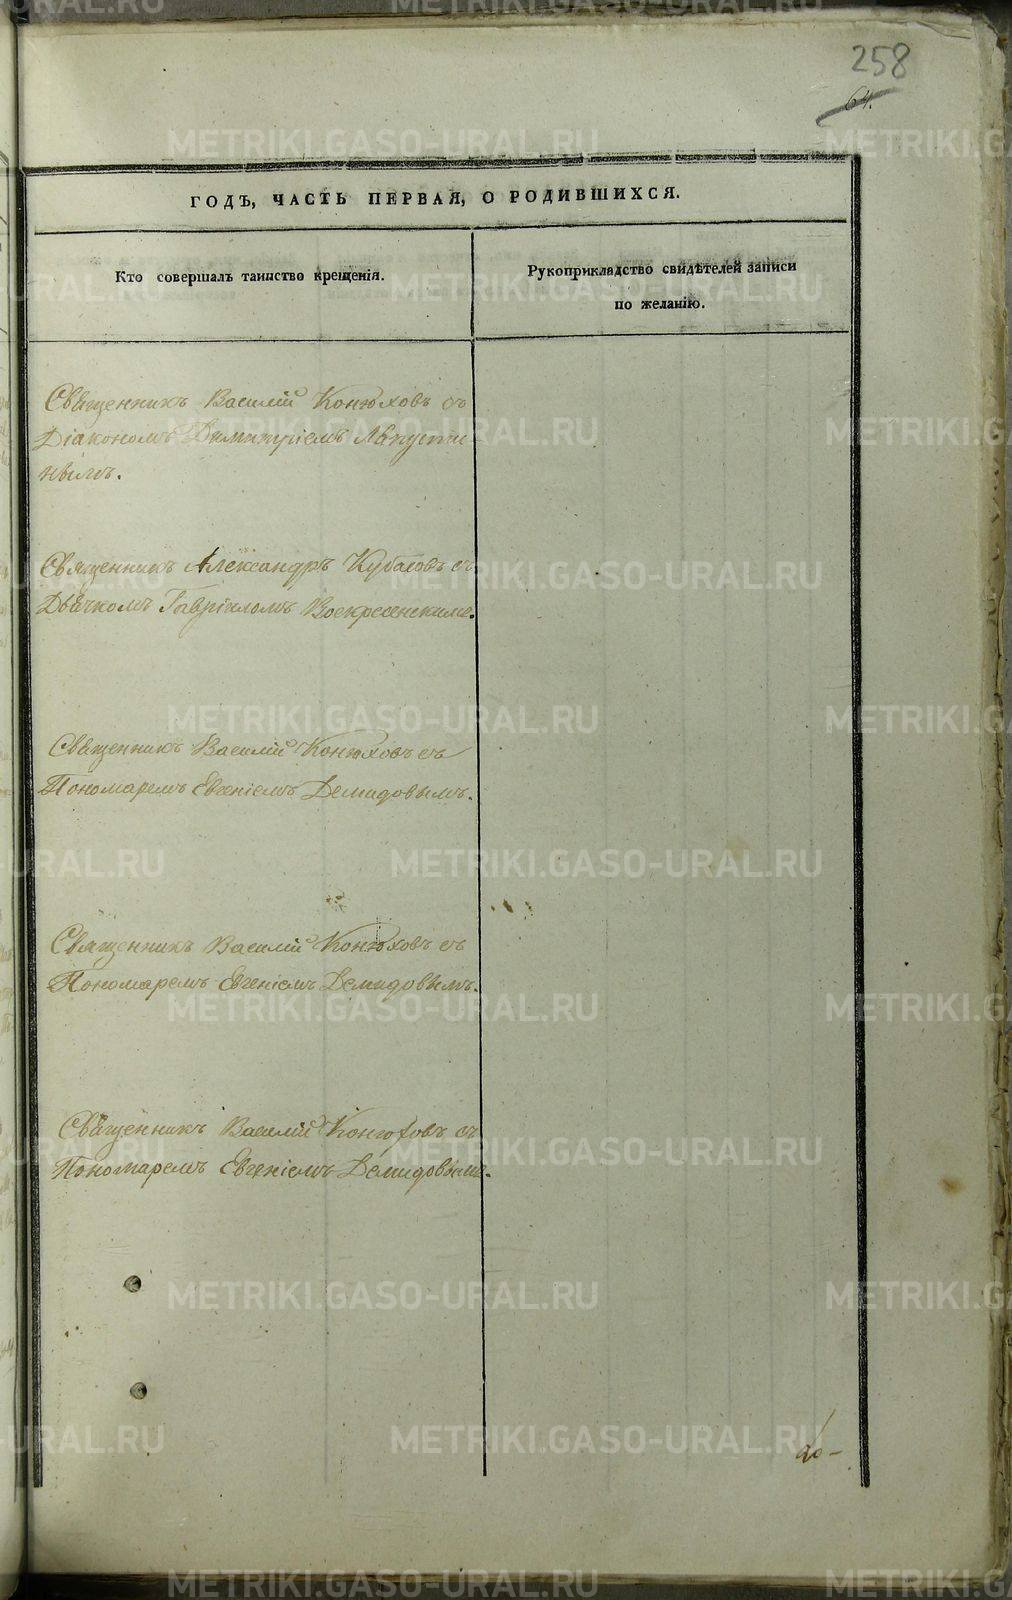 258
64.
ГОДЪ, ЧАСТЬ ПЕРВАЯ, О РОДИВШИХСЯ.
Кто совершалъ таинство крещенія.
Рукоприкладство свидѣтелей записи
по желанію.
Священникъ Василій Конюховъ съ
Діакономъ Димитріемъ
нымъ.
Священникъ Александръ Кубасовъ съ
Дьячкомъ Гавріиломъ Воскресенскимъ.
Священникъ Василій Конюховъ съ
Пономаремъ Евгеніемъ Демидовымъ.
Священникъ Василій Конюховъ съ
Пономаремъ Евгеніемъ Демидовымъ.
Священникъ Василій Конюховъ съ
Пономаремъ Евгеніемъ Демидовымъ.
METRIKI.GASO-URAL.RU